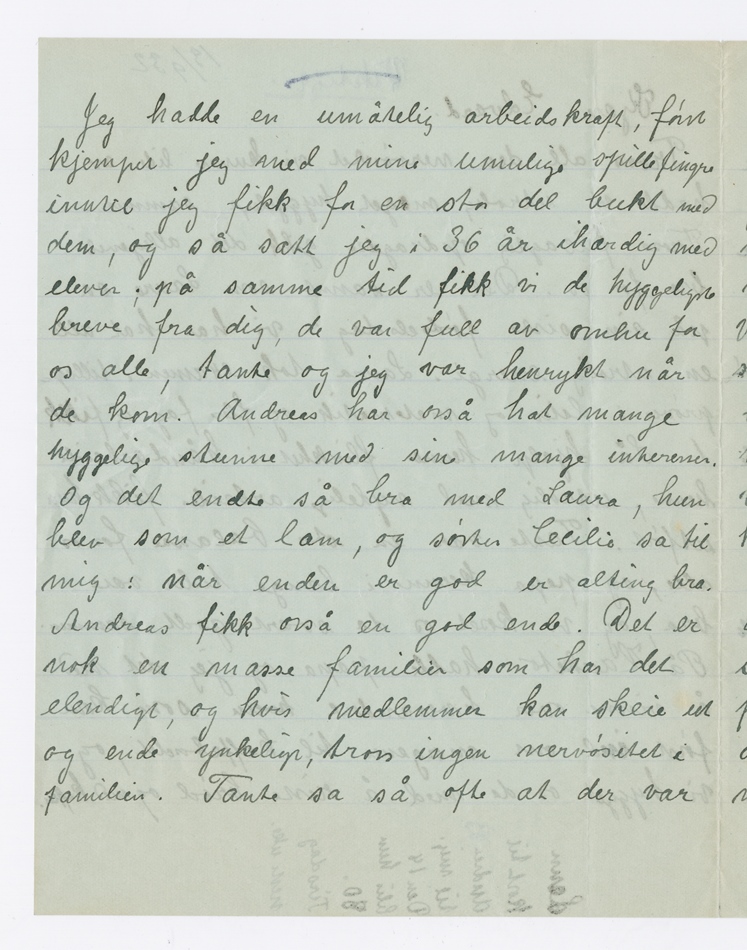 Jeg hadde en umåtelig arbeidskraft, først
kjempet jeg med mine umulige spillefingre
inntil jeg fikk for en stor del bukt med
dem, og så satt jeg i 36 år ihærdig med
elever; på samme tid fikk vi de hyggeligste
breve fra dig, de var full av omhu for
os alle, tante og jeg var henrykt når
de kom. Andreas har også hat mange
hyggelige stunne med sine mange interesser.
Og det endte så bra med Laura, hun
blev som et lam, og søster Cecilie sa til
mig: når enden er god er alting bra.
Andreas fikk også en god ende. Det er
nok en masse familier som har det
elendigt, og hvis medlemmer kan skeie ut
og ende ynkeligt, tross ingen nervøsitet i
familien. Tante sa så ofte at der var